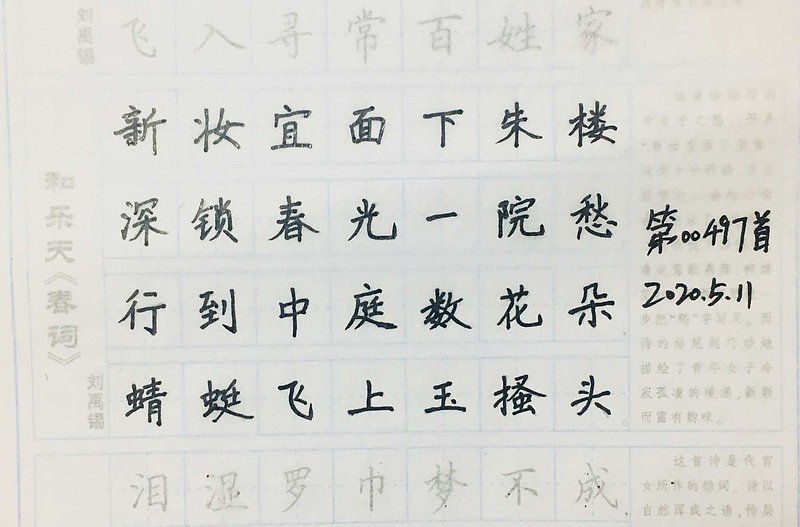 刘禹锡
飞入寻常百姓家
和乐天《春词》
刘禹锡
新妆宜面下朱楼
深锁春光一院愁
行到中庭数花朵
蜻蜓飞上玉搔头
第00497首
2020.5.11
步把“愁”字写足。而
诗的结尾则巧妙地
描绘了青年女子冷
寂孤凄的境遇，新颖
而富有韵味。
泪湿罗巾梦不成
这首诗是代宫
女所作的怨词。诗以
自然浑成之语，传层